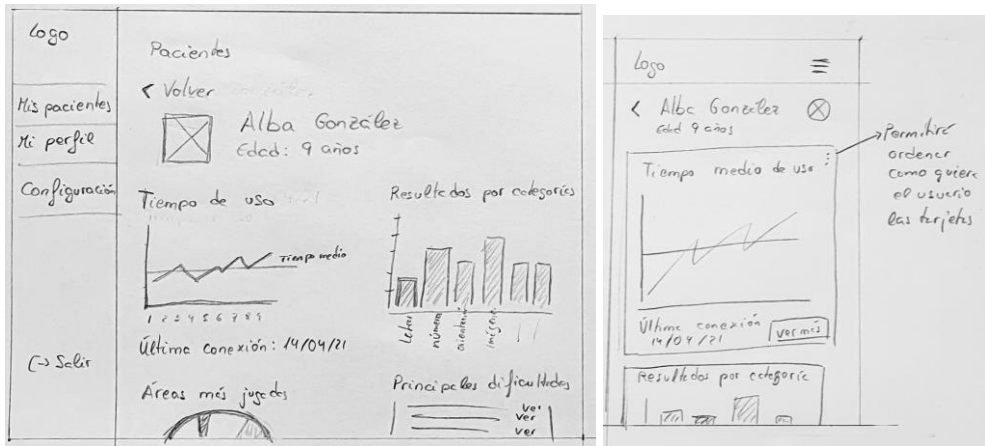 Logo
Mis pacientes
Mi perfil
Configuración
Salir
Pacientes
< Volver
Alba González
Edad: 9 años
Tiempo de uso
Tiempo medio
1 2 3 4 5 6 7 8 9
Última conexión: 14/04/21
Resultados por categorías
letras
número
orientación
Áreas más jugadas
Principales dificultades
ver
ver
ver
Logo
< Alba González
Edad 9 años
Tiempo medio de uso
Última conexión
14/04/21
ver más
Resultados por categoría
Permitirá
ordenar
como quiera
el usuario
las tarjetas